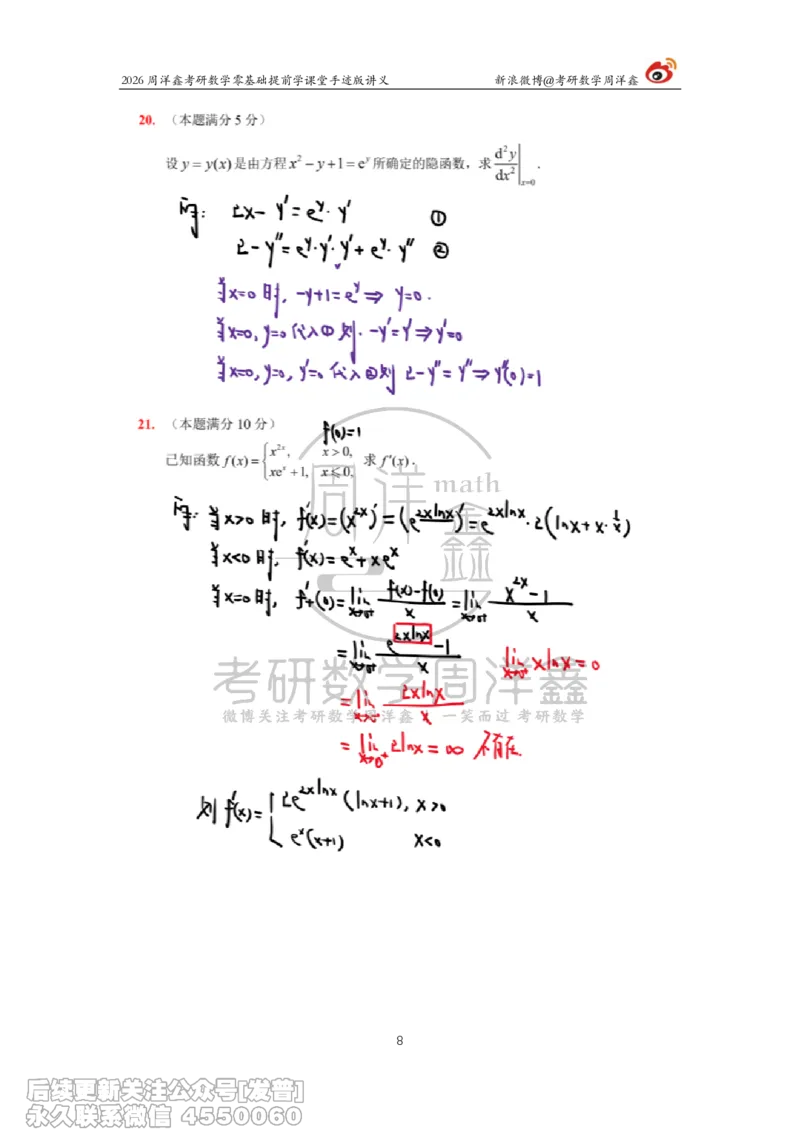 2026 周洋鑫考研数学零基础提前学课堂手迹版讲义 新浪微博@考研数学周洋鑫
20. （本题满分 5 分）
设 y = y(x) 是由方程 x² − y + 1 = e^y 所确定的隐函数，求 d²y/dx² |x=0 .
解: 2x − y' = e^y · y' ①
2 − y'' = e^y · y' · y' + e^y · y'' ②
当x=0时, −y+1=e^y ⇒ y=0.
当x=0, y=0 代入① 则. −y'=y' ⇒ y'=0
当x=0, y=0, y'=0 代入②则 2−y''=y'' ⇒ y''(0)=1
21. （本题满分 10 分） f(0)=1
已知函数 f(x) = { x^{2x}, x > 0,
xe^x + 1, x ⩽ 0, 求 f'(x).
解: 当x>0时, f'(x)=(x^{2x})'=(e^{2xlnx})'=e^{2xlnx}·2(lnx+x·1/x)
当x<0时, f'(x)=e^x+xe^x
当x=0时, f'₊(0)=lim x→0⁺ (f(x)−f(0))/x = lim x→0⁺ (x^{2x}−1)/x
= lim x→0⁺ (e^{2xlnx}−1)/x lim x→0⁺ xlnx=0
= lim x→0⁺ 2xlnx/x
= lim x→0⁺ 2lnx = ∞ 不存在.
则 f'(x)= { 2e^{2xlnx}(lnx+1), x>0
e^x(x+1) x<0
周洋鑫 math
考研数学周洋鑫
微博关注考研数学周洋鑫 一笑而过 考研数学
8
后续更新关注公众号[发普]
永久联系微信 4550060